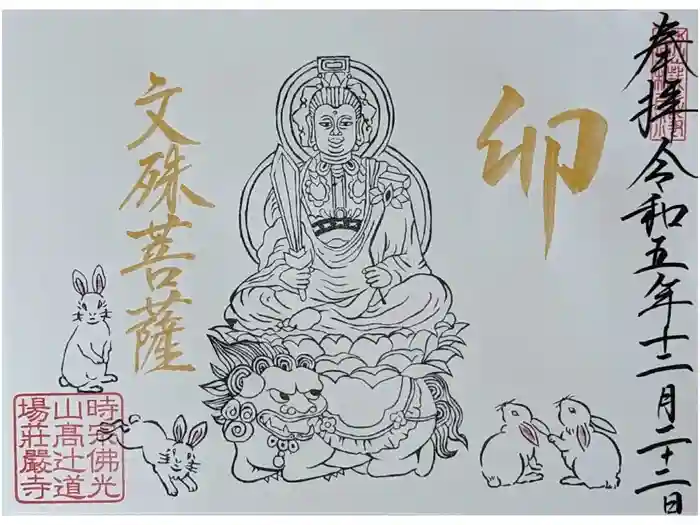 奉拝
令和五年十二月二十二日
卯
文殊菩薩
時宗佛光
山高辻道
場荘嚴寺